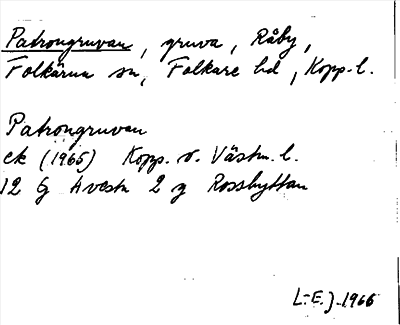 Patrongruvan, gruva, Råby,
Folkärna sn, Folkare hd, Kopp. l.
Patrongruvan
ek (1965) Kopp. o. Västm. l.
12 G Avesta 2 g Rosshyttan
L-E. J. 1966